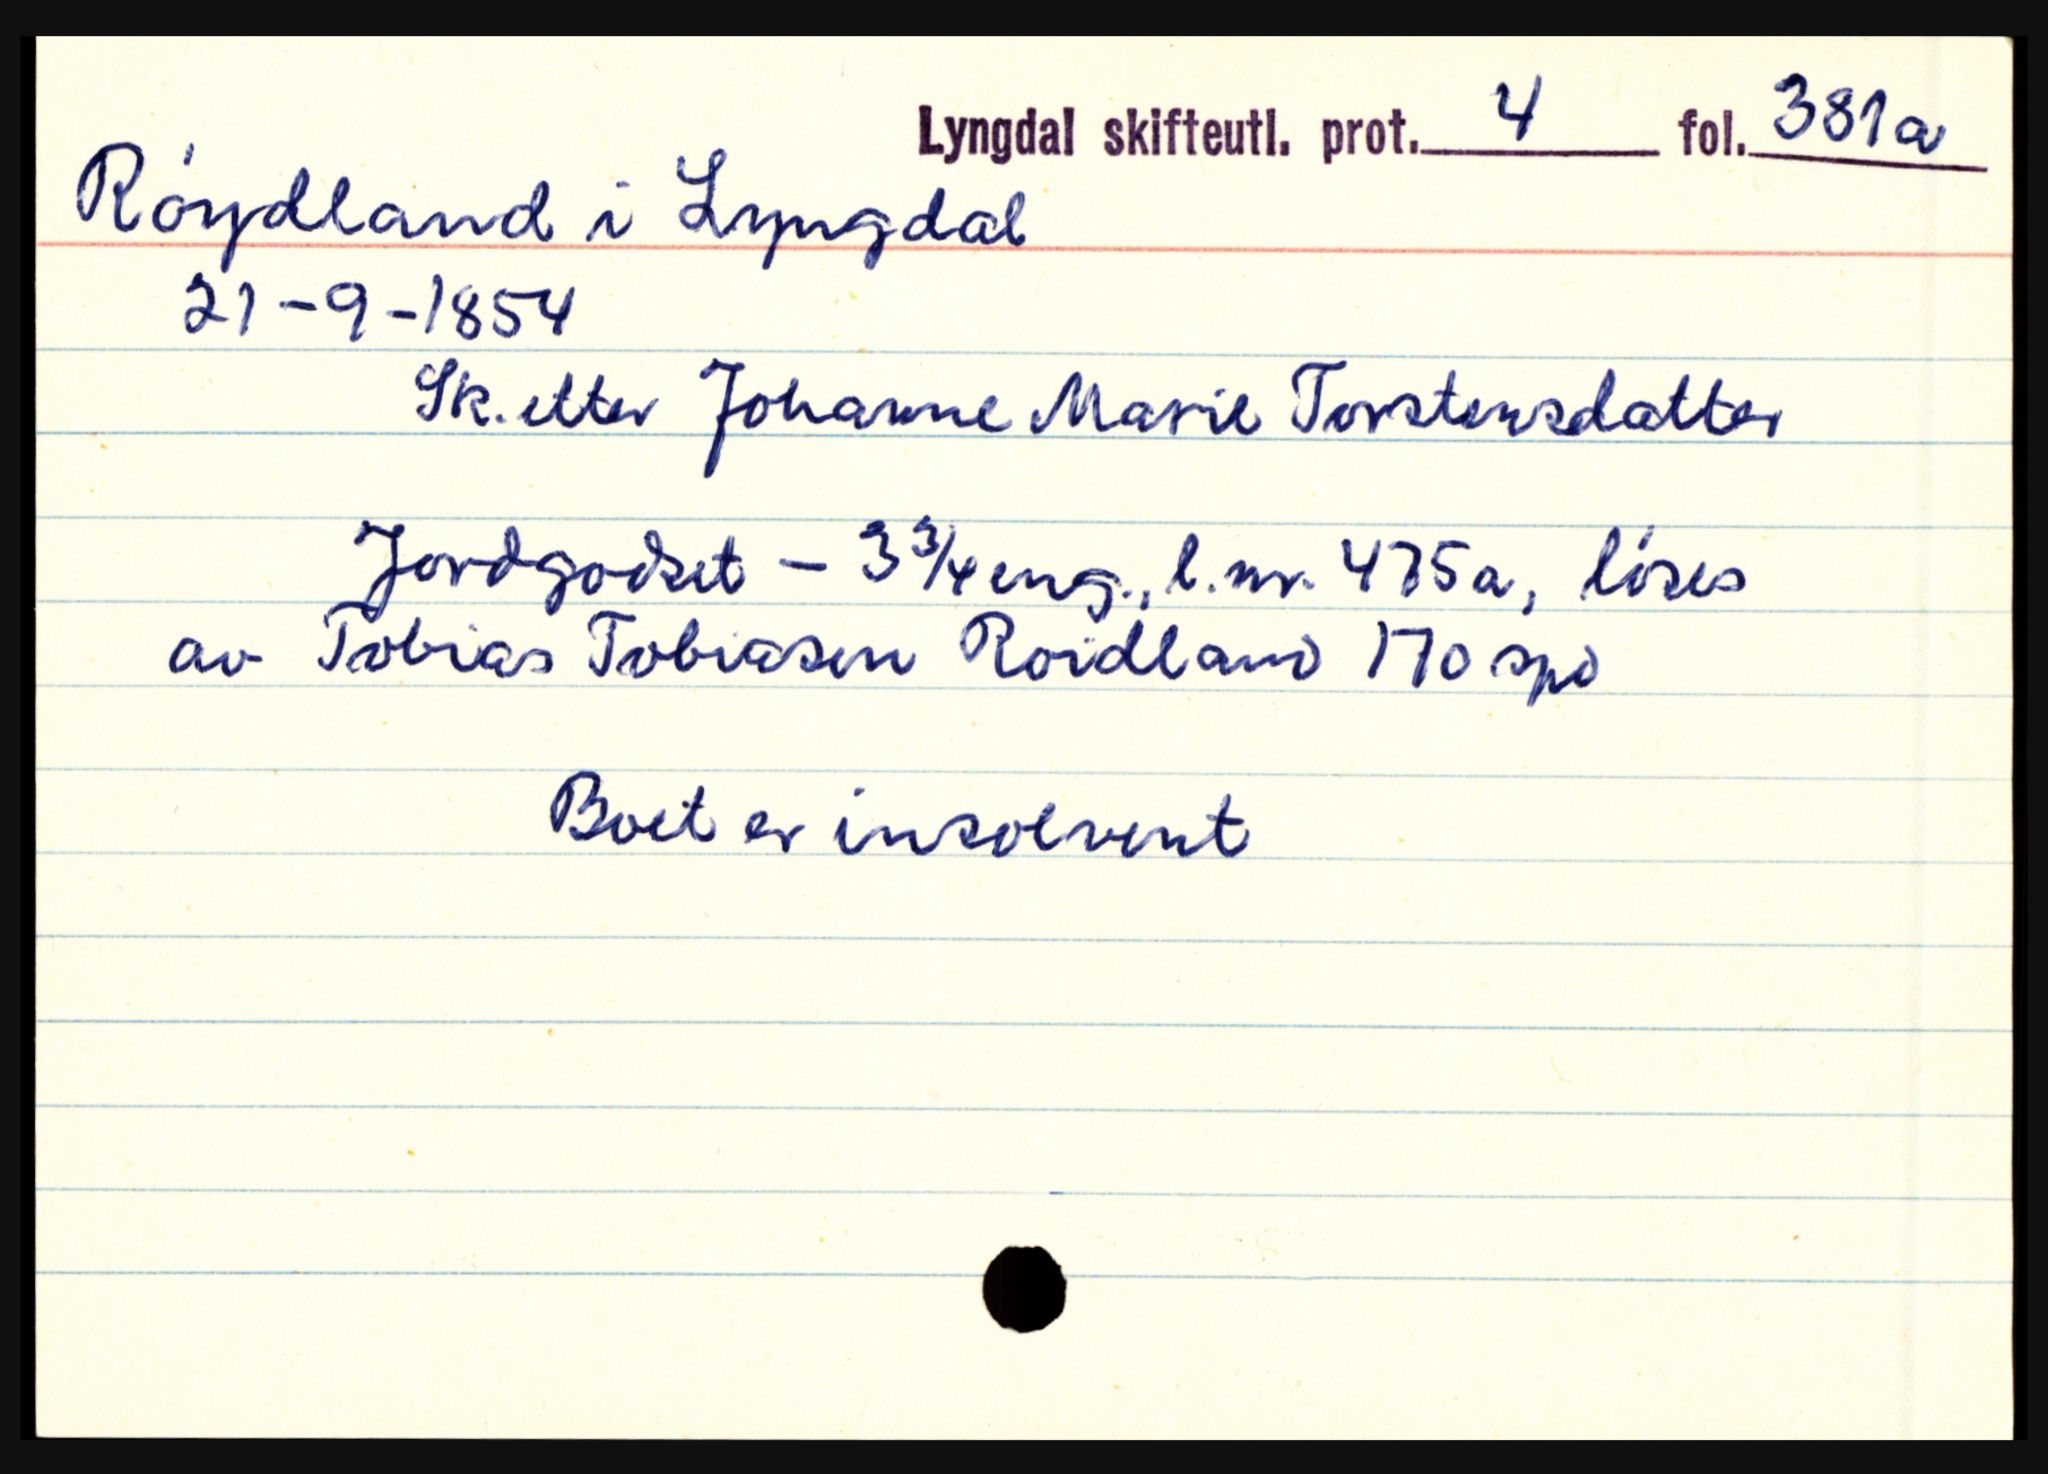 Lyngdal skifteutl. prot. 4 fol. 381a
Róydland i Lyngdal
21-9-1854
Sk. etter Johanne Marie Torstensdatter
Jordgodset - 3 3/4 eng., l.nr. 475a, lóses
av Tobias Tobiasen Roidland 170 spd
Boet er insolvent